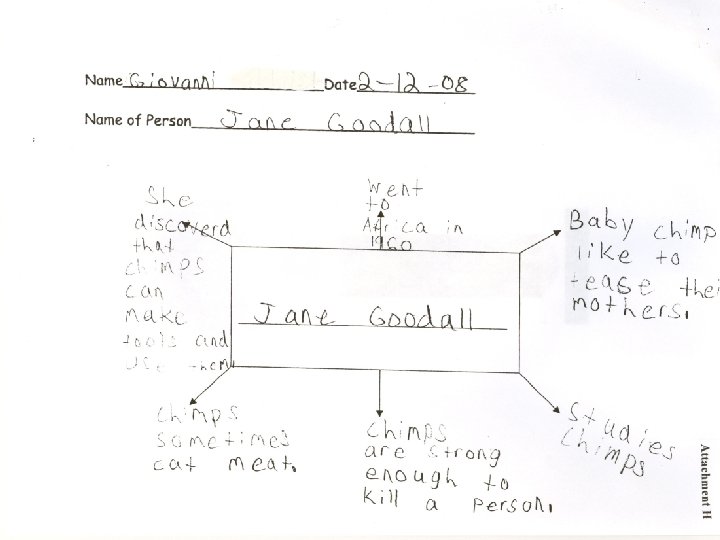 Name Giovanni Date 2-12-08
Name of Person Jane Goodall
She
discoverd
that
chimps
can
make
tools and
use them.
Went
to
Africa in
1960
Baby chimp
like to
tease thei
mothers.
Jane Goodall
Chimps
sometimes
eat meat.
Chimps
are strong
enough to
kill a person.
Studies
Chimps
Attachment H